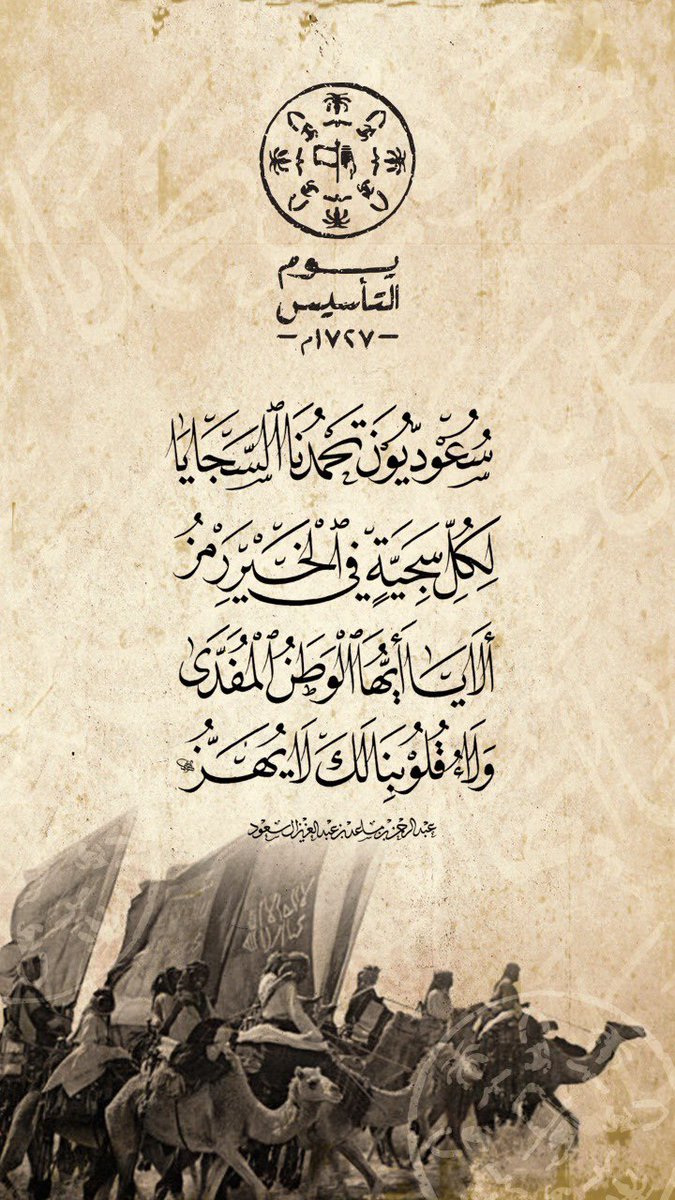 يــوم
التأسيس
-١٧٢٧م-
سُعُوْدِيُّوْنَ تَحْمَدُنَا ٱلسَّجَايَا
لِكُلِّ سَجِيَّةٍ فِي ٱلْخَيْرِ رَمْزُ
أَلَا يَا أَيُّهَا ٱلْوَطَنُ ٱلْمُفَدَّىٰ
وَلَاءُ قُلُوْبِنَا لَكَ لَا يُهَزُّ
عبدالرحمن بن مساعد بن عبدالعزيز آل سعود